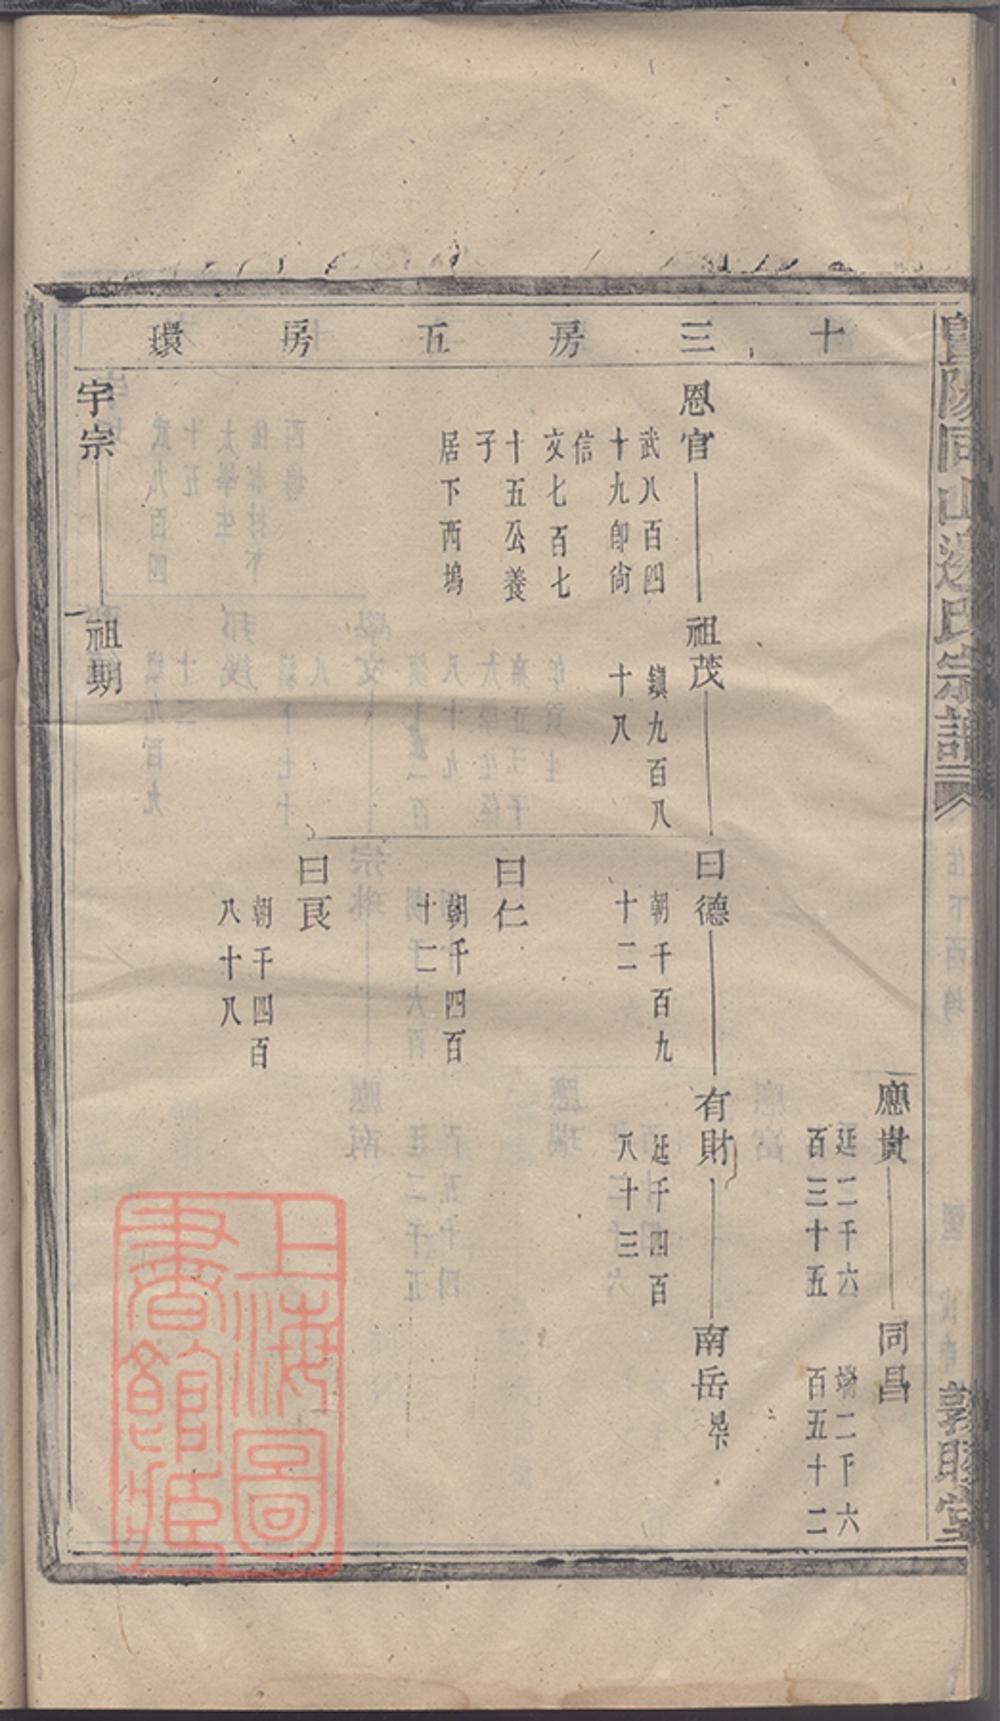 暨陽同山邊氏宗譜
敦睦堂
十三房五房環
應貴
廷二千六
百三十五
同昌
端二千六
百五十二
恩官
武八百四
十九卽尙
信
文七百七
十五公養
子
居下西塢
祖茂
鎮九百八
十八
曰德
朝千百九
十二
有財
廷千四百
八十三
南岳
曰仁
朝千四百
十二
曰良
朝千四百
八十八
宇宗
祖期
上海圖
書館藏